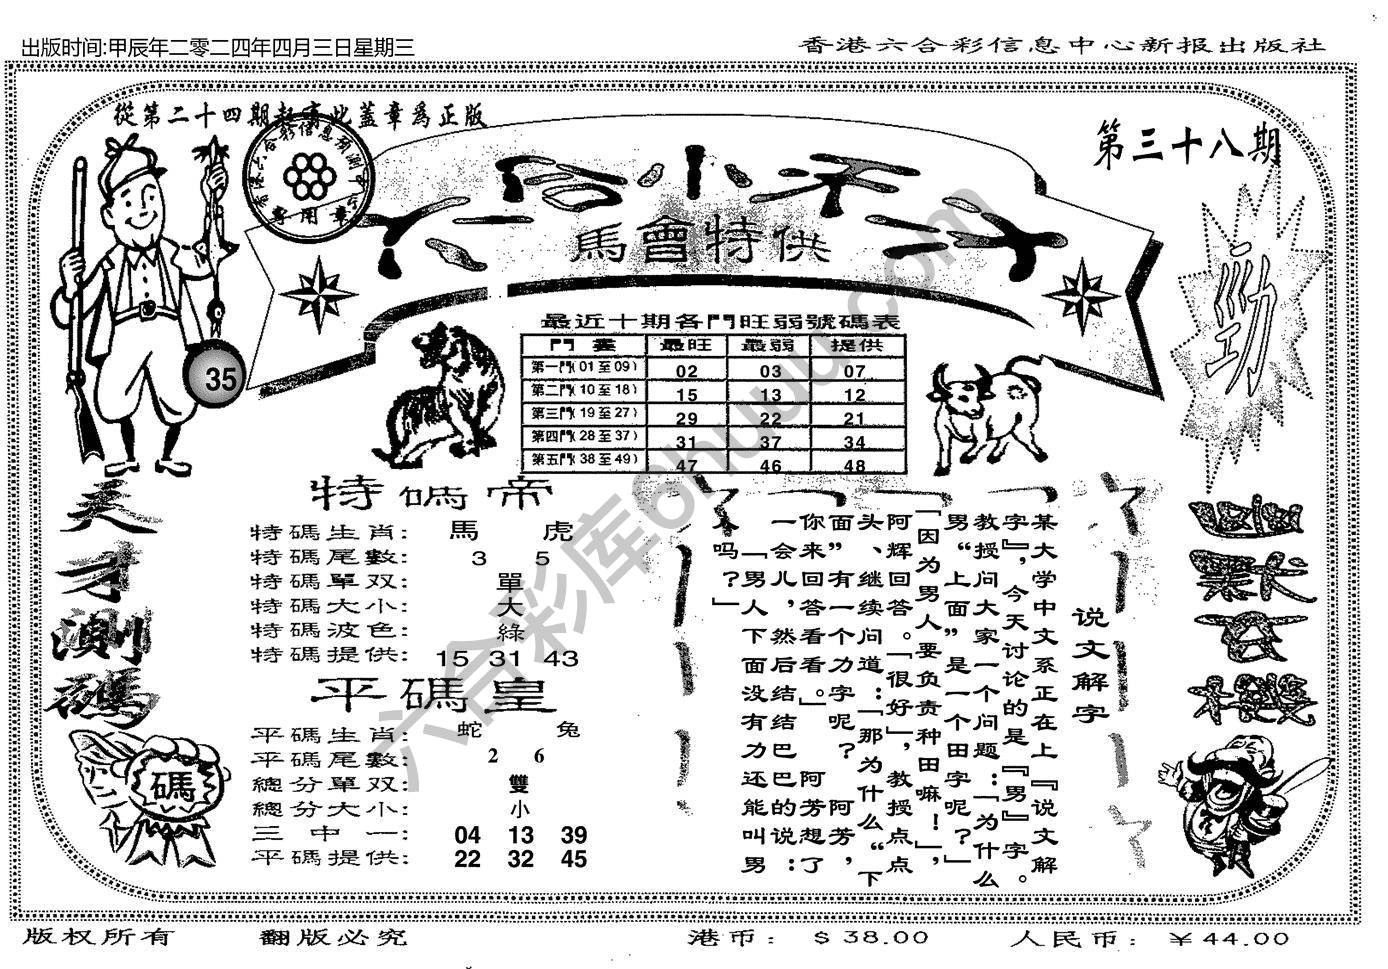 出版时间:甲辰年二零二四年四月三日星期三
香港六合彩信息中心新报出版社
從第二十四期起寄此蓋章爲正版
第三十八期
香港六合彩信息預測中心
專用章
六合小天子
馬會特供
勁
35
最近十期各門旺弱號碼表
門 最旺 最弱 提供
第一門(01至09) 02 03 07
第二門(10至18) 15 13 12
第三門(19至27) 29 22 21
第四門(28至37) 31 37 34
第五門(38至49) 47 46 48
天才測碼
碼
特碼帝
特碼生肖: 馬 虎
特碼尾數: 3 5
特碼單双: 單
特碼大小: 大
特碼波色: 綠
特碼提供: 15 31 43
平碼皇
平碼生肖: 蛇 兔
平碼尾數: 2 6
總分單双: 雙
總分大小: 小
三中一: 04 13 39
平碼提供: 22 32 45
说文解字
某大学中文系正在上『说文解
字』,今天讨论的是『男』字。
教授问大家一个问题:「为什么
男“上面”是一个田字呢?」
「因为男人要负责种田嘛!」,
阿辉回答。「很好」,教授点点
头、继续问道:「那为什么“下
面”有一个力字呢?阿芳,
你来回答看看。」阿芳想了
一会儿,然后结结巴巴的说:
「男人下面没有力还能叫男
人吗?」
版权所有 翻版必究
港币: $38.00 人民币: ¥44.00
六合彩库6huu.com